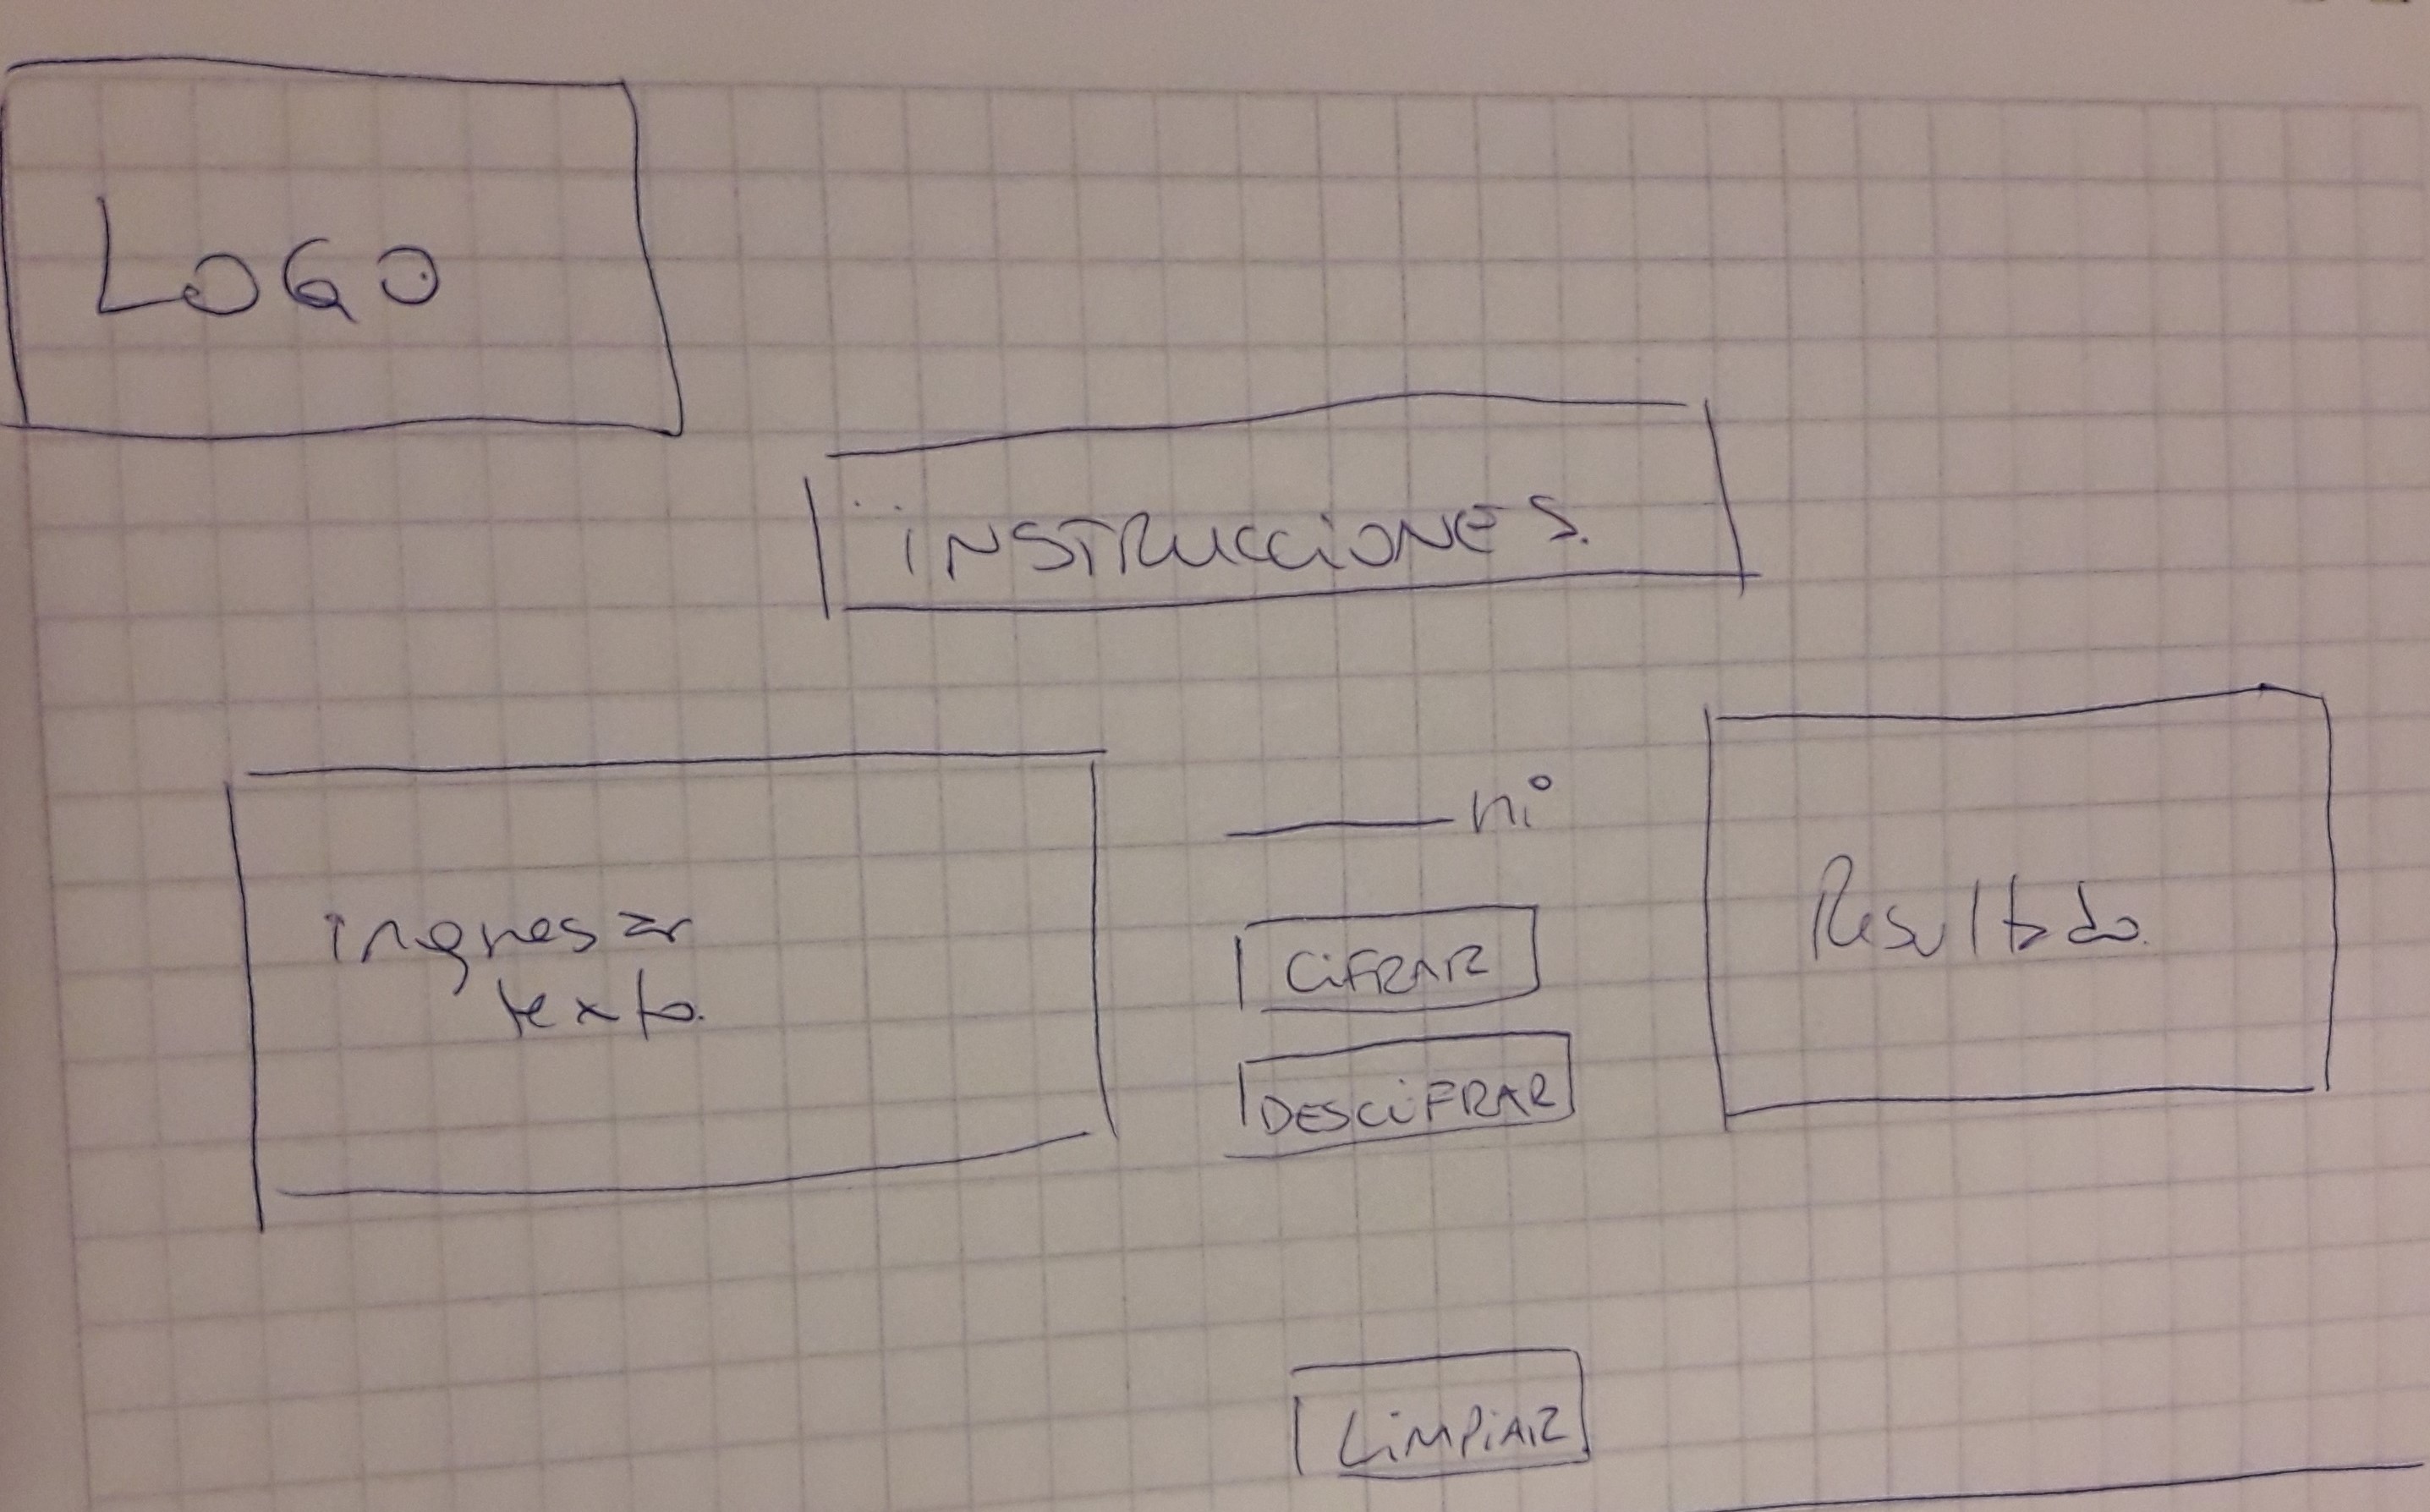 LOGO
INSTRUCCIONES.
ingresar
texto.
n°
CIFRAR
DESCIFRAR
Resultado.
LIMPIAR